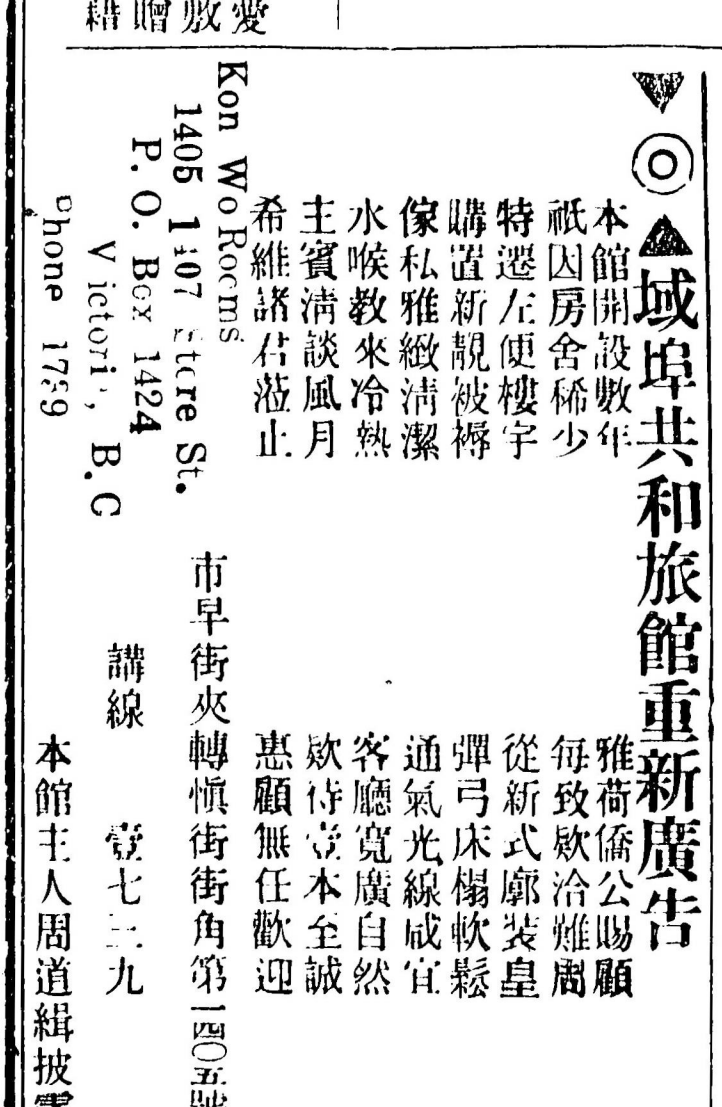 愛敷贈籍
域埠共和旅館重新廣告
本館開設數年 雅荷僑公賜顧
祇因房舍稀少 每致欵洽難周
特遷左便樓宇 從新式廓裝皇
購置新靚被褥 彈弓床榻軟鬆
傢私雅緻清潔 通氣光線咸宜
水喉教來冷熱 客廳寬廣自然
主賓清談風月 欵待壹本至誠
希維諸君蒞止 惠顧無任歡迎
Kon Wo Rooms
1405 1407 Store St.
P. O. Box 1424
Victoria, B.C
Phone 1739
市早街夾轉慎街街角第一四〇五號
講線 壹七三九
本館主人周道緝披露